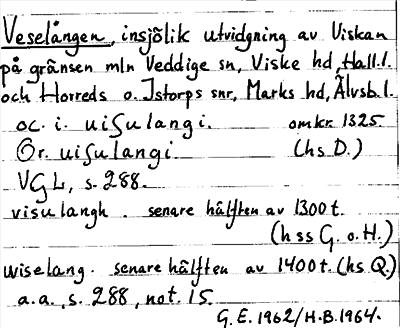 Veselången, insjölik utvidgning av Viskan
på gränsen mln Veddige sn, Viske hd, Hall.l.
och Horreds o. Istorps snr, Marks hd, Älvsb.l.
oc. i. uiſulangi. omkr. 1325.
Or. uiſulangi (hs D.)
VGL, s. 288.
visulangh. senare hälften av 1300 t.
(hss G. o. H.)
wiselang. senare hälften av 1400 t. (hs Q.)
a.a., s. 288, not. 15.
G.E. 1962/H.B. 1964.